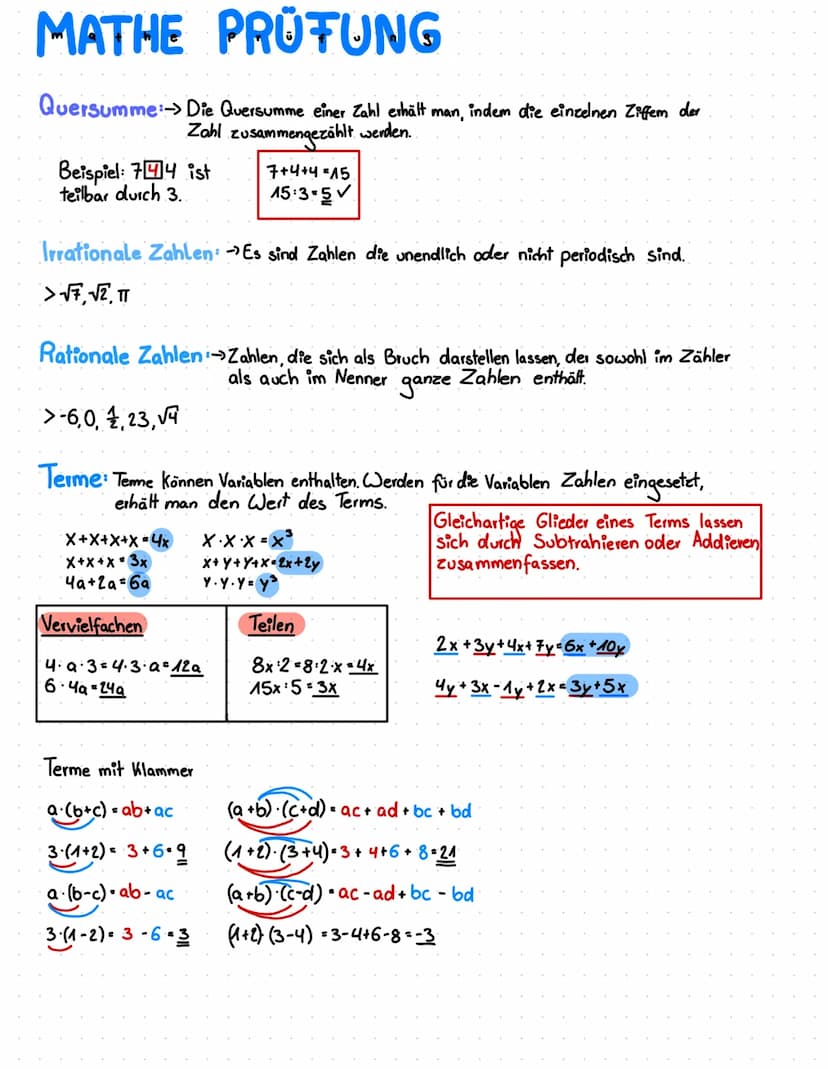 MATHE PRÜFUNG
Quersumme:→ Die Quersumme einer Zahl erhält man, indem die einzelnen Ziffern der
Zahl zusammengezählt werden.
Beispiel: 744 ist
teilbar durch 3.
7+4+4=15
15:3=5 ✓
Irrationale Zahlen: → Es sind Zahlen die unendlich oder nicht periodisch sind.
> √7, √2, π
Rationale Zahlen:→ Zahlen, die sich als Bruch darstellen lassen, der sowohl im Zähler
als auch im Nenner ganze Zahlen enthält.
> -6, 0, 1/2, 23, √4
Terme: Terme können Variablen enthalten. Werden für die Variablen Zahlen eingesetzt,
erhält man den Wert des Terms.
x+x+x+x=4x
x+x+x=3x
4a+2a=6a
x·x·x=x³
x+y+y+x=2x+2y
y·y·y=y³
Gleichartige Glieder eines Terms lassen
sich durch Subtrahieren oder Addieren
zusammenfassen.
Vervielfachen
4·a·3=4·3·a=12a
6·4a=24a
Teilen
8x:2=8:2·x=4x
15x:5=3x
2x+3y+4x+7y=6x+10y
4y+3x-1y+2x=3y+5x
Terme mit Klammer
a·(b+c)=ab+ac
(a+b)·(c+d)=ac+ad+bc+bd
3·(1+2)=3+6=9
(1+2)·(3+4)=3+4+6+8=21
a·(b-c)=ab-ac
(a+b)·(c-d)=ac-ad+bc-bd
3·(1-2)=3-6=3
(1+2)·(3-4)=3-4+6-8=-3